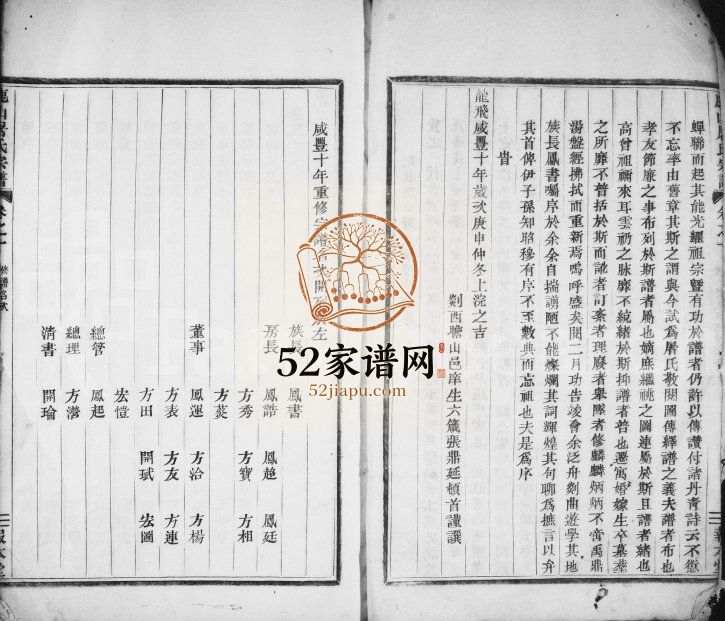 蟬聯而起其能光耀祖宗暨有功於譜者仍許以傳讚付諸丹青詩云不愆
不忘率由舊章其斯之謂與今試為屠氏敬閱圖傳繹譜之義夫譜者布也
孝友節廉之事布列於斯譜者屬也嫡庶繼祧之圖連屬於斯且譜者緒也
高曾祖禰來耳雲礽之脉靡不統緒於斯抑譜者普也遷寓婚嫁生卒墓塋
之所靡不普括於斯而訛者訂紊者理廢者舉墜者修麟麟炳炳不啻禹鼎
湯盤經拂拭而重新焉嗚呼盛矣閱二月功告竣會余泛舟剡曲遊學其地
族長鳳書囑序於余余自揣謭陋不能燦爛其詞輝煌其句聊為摭言以弁
其首俾伊子孫知昭穆有序不至數典而忘祖也夫是為序
旹
龍飛咸豐十年歲次庚申仲冬上浣之吉
剡西瞻山邑庠生六箴張鼎延頓首謹譔
山屠氏宗譜
卷之一
修譜名次
咸豐十年重修宗譜名次開列於左
族長 鳳書
房長 鳳誥 鳳超 鳳廷
方秀 方寶 方相
方莢
董事 鳳運 方洽 方楊
方表 方友 方連
方田 開斌 宏圖
宏愷
總管 鳳起
總理 方濳
清書 開瑜
52家谱网
52jiapu.com